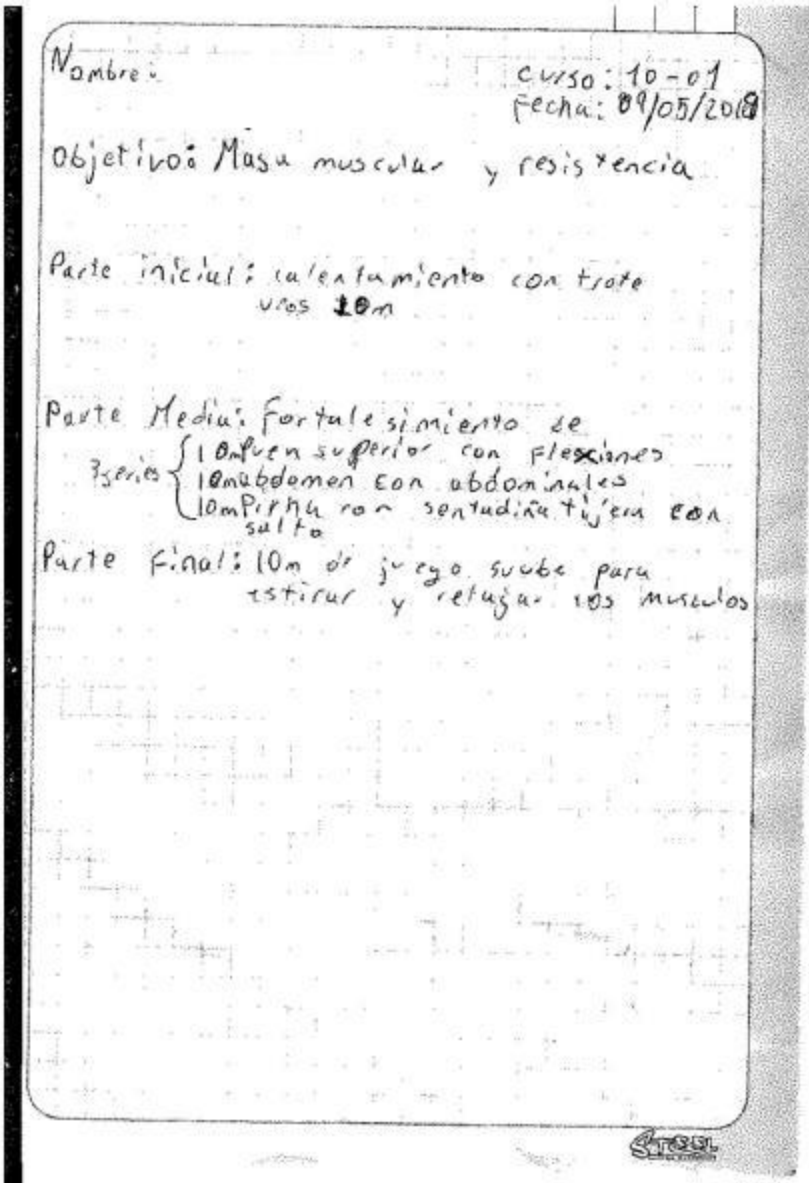 Nombre:
curso: 10-01
Fecha: 09/05/2018
Objetivo: Masa muscular y resistencia
Parte inicial: calentamiento con trote
unos 10m
Parte Media: Fortalesimiento de
3 series { 10m tren superior con flexiones
10m abdomen con abdominales
10m Pierna con sentadilla tijera con
salto
Parte Final: 10m de juego suabe para
estirar y relajar los musculos
STEEL